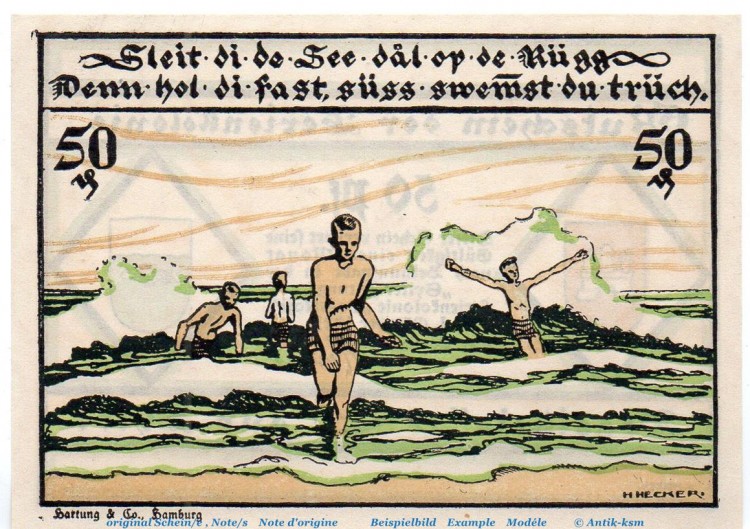 Sleit · di · de · See · dål · op · de · Rügg
Denn · hol · di · fast, süss · swem̅st · du · trüch.
50 50
₰ ₰
H HECKER.
Hartung & Co., Hamburg
original Schein/e , Note/s Note d'origine Beispielbild Example Modéle © Antik-ksm